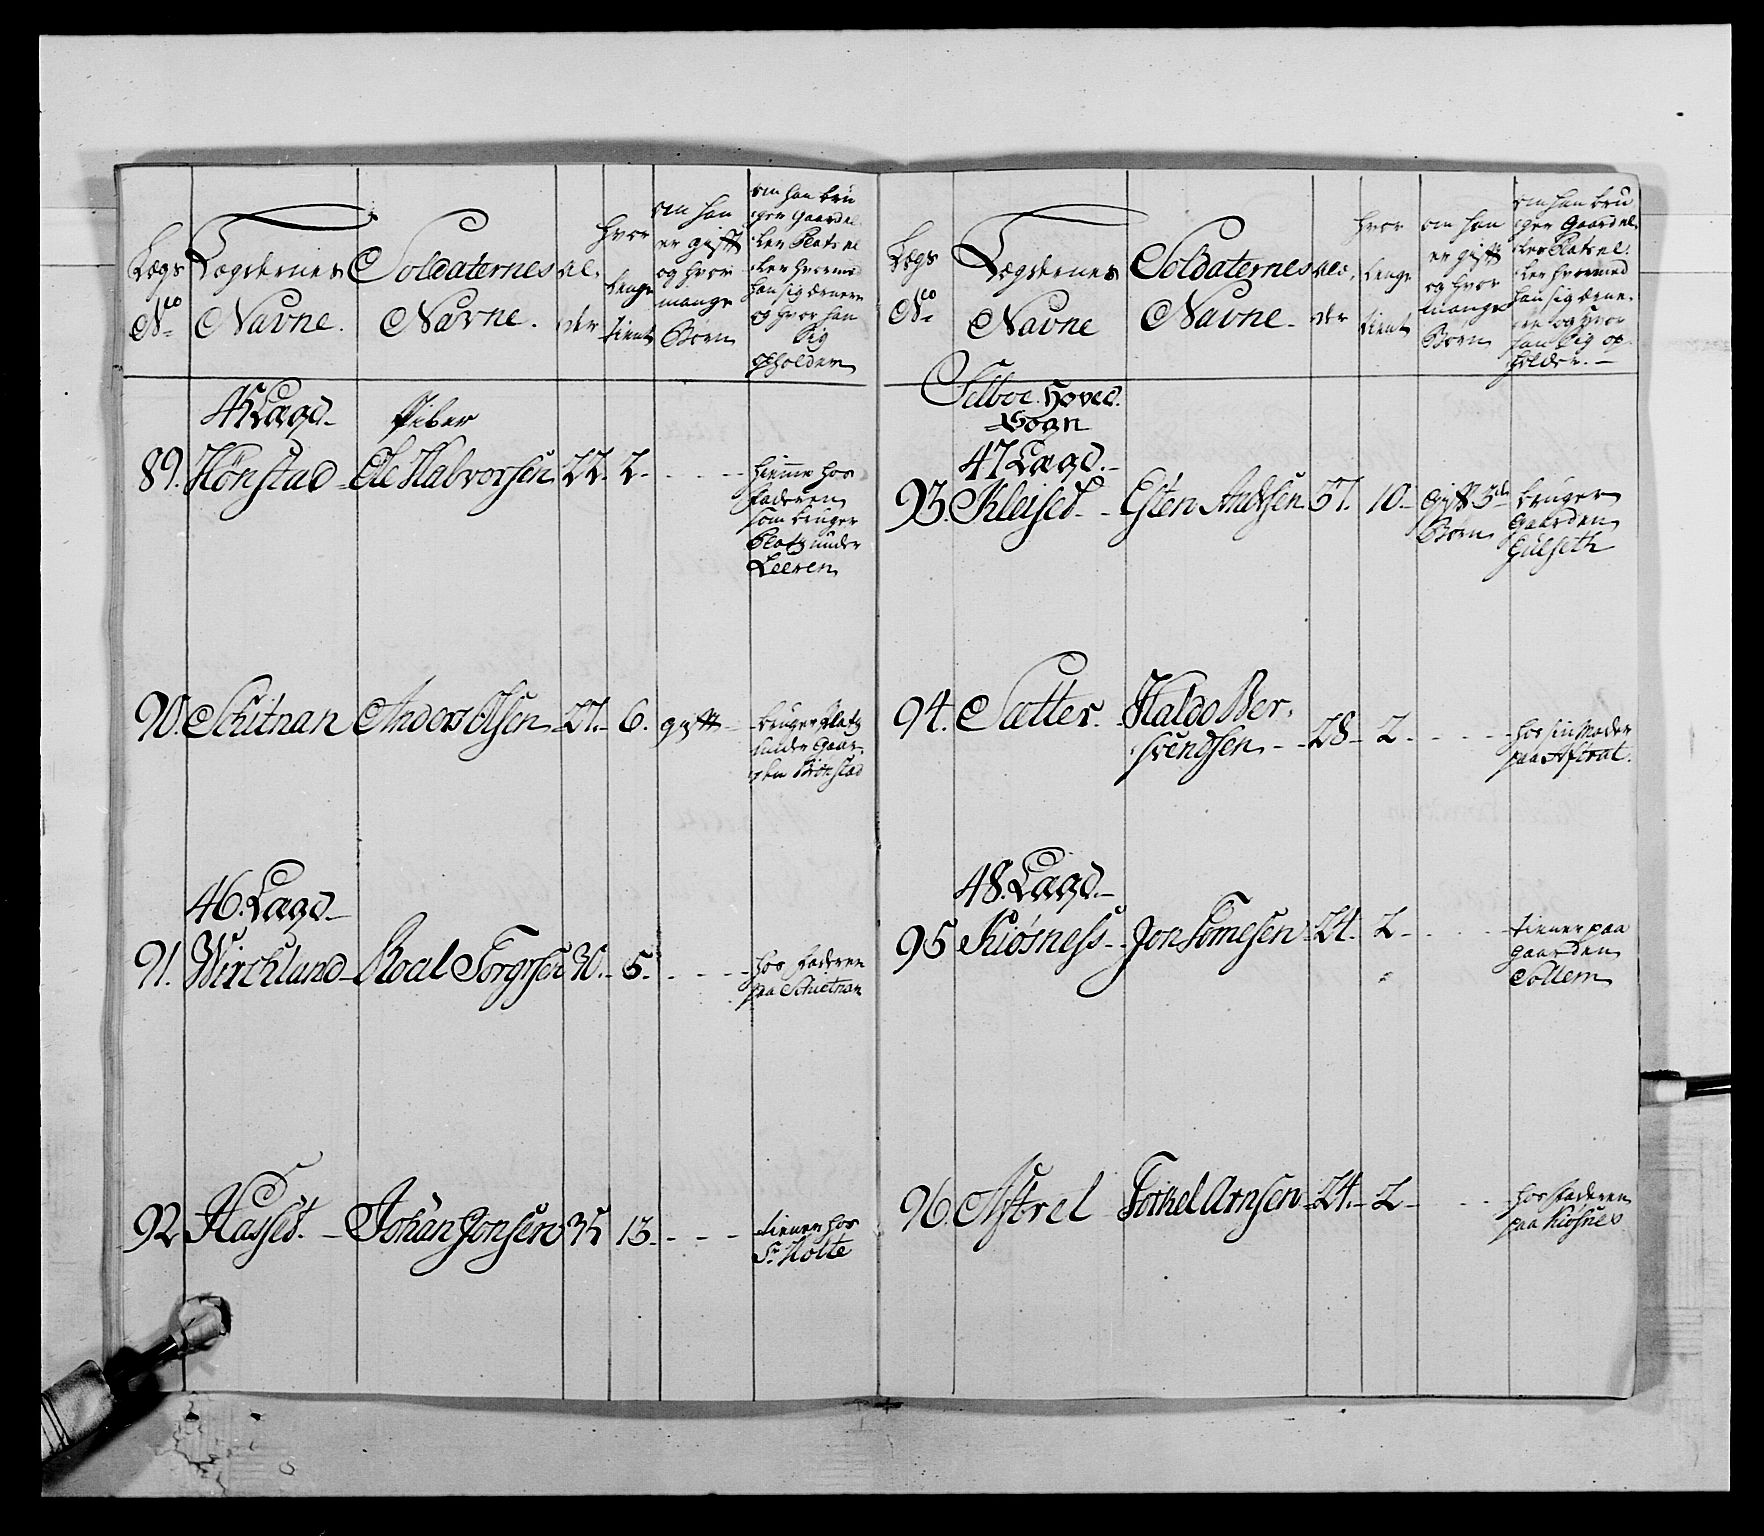 Lægs
No
Lægdernes
Navne.
Soldaternes
Navne.
al-
der
hvor
lenge
tient
om han
er gift
og hvor
mange
Børn
om han bru
ger Gaard el
ler Plats el
ler hvormed
han sig ærnerer
og hvor han
sig
opholder
45 Lægd
Piber
89. Hønstad Ole Halvorsen 22. 2. - - -
hiemme hos
Faderen
som bruger
Platz under
Leeren
90. Schitnan Anders Olsen 27. 6. gift
bruger Platz
under Gaar-
den Hønstad
46. Lægd
91. Wirchland Roal Torgrsen 30. 5. - - -
hos Faderen
paa Schietnan
92 Hasset. Johan Jonsen 35 13. - - -
tiener hos
Sr. Holte
Lægs
No
Lægdernes
Navne
Soldaternes
Navne.
al-
der
hvor
lenge
tient
om han
er gift
og hvor
mange
Børn
om han bru
ger Gaard el.
ler Plats el.
ler hvormed
han sig ærne-
rer og hvor
han sig op-
holder.
Selboe Hoved
Sogn
47 Lægd.
93. Kleised Esten Andsen 37. 10. gift 3de
Børn
bruger
Gaarden
Gulseth
94. Sætter Haldo Ber-
svendsen 28 2. - - -
hos sin Moder
paa Aftrat.
48. Lægd.
95 Kiøsness Jon Tomesen 24. 2. - - -
tiener paa
gaarden
Sollem
96. Aftrel Torkel Arnsen 24. 2 - - -
hos Faderen
paa Kiøsnes